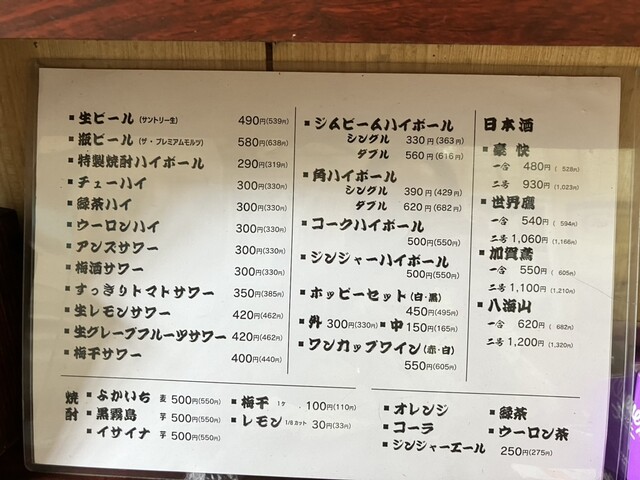 ■生ビール (サントリー生) 490円(539円)
■瓶ビール (ザ・プレミアムモルツ) 580円(638円)
■特製焼酎ハイボール 290円(319円)
■チューハイ 300円(330円)
■緑茶ハイ 300円(330円)
■ウーロンハイ 300円(330円)
■アンズサワー 300円(330円)
■梅酒サワー 300円(330円)
■すっきりトマトサワー 350円(385円)
■生レモンサワー 420円(462円)
■生グレープフルーツサワー 420円(462円)
■梅干サワー 400円(440円)
■ジムビームハイボール
シングル 330円(363円)
ダブル 560円(616円)
■角ハイボール
シングル 390円(429円)
ダブル 620円(682円)
■コークハイボール
500円(550円)
■ジンジャーハイボール
500円(550円)
■ホッピーセット(白・黒)
450円(495円)
■外 300円(330円) ■中 150円(165円)
■ワンカップワイン(赤・白)
550円(605円)
日本酒
■豪快
一合 480円(528円)
二号 930円(1,023円)
■世界鷹
一合 540円(594円)
二号 1,060円(1,166円)
■加賀鳶
一合 550円(605円)
二号 1,100円(1,210円)
■八海山
一合 620円(682円)
二号 1,200円(1,320円)
焼酎
■よかいち 麦 500円(550円)
■黒霧島 芋 500円(550円)
■イサイナ 芋 500円(550円)
■梅干 1ケ 100円(110円)
■レモン 1/6カット 30円(33円)
■オレンジ ■緑茶
■コーラ ■ウーロン茶
■ジンジャーエール 250円(275円)